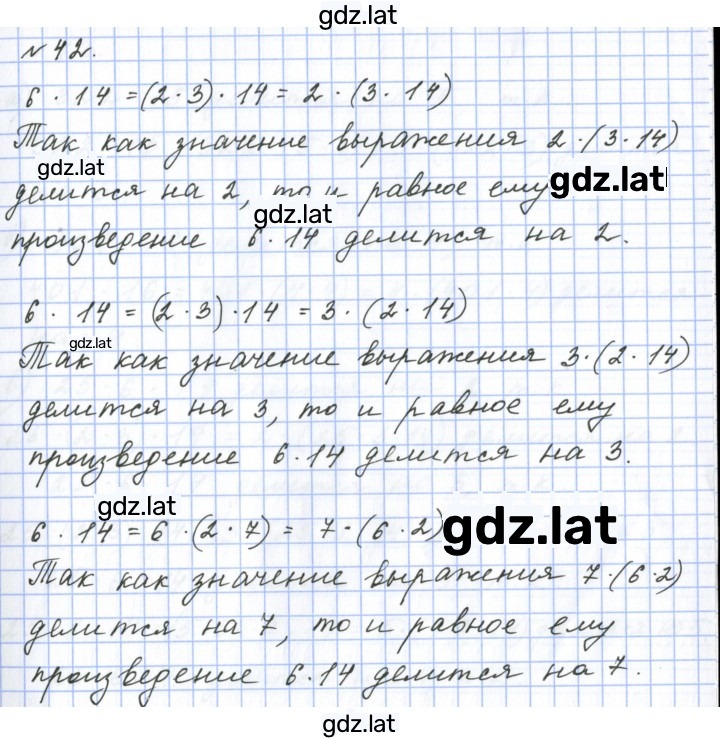 gdz.lat
№ 42.
6 · 14 = (2 · 3) · 14 = 2 · (3 · 14)
Так как значение выражения 2 · (3 · 14)
gdz.lat
делится на 2, то и равное ему
gdz.lat
gdz.lat
произведение 6 · 14 делится на 2.
6 · 14 = (2 · 3) · 14 = 3 · (2 · 14)
gdz.lat
Так как значение выражения 3 · (2 · 14)
делится на 3, то и равное ему
произведение 6 · 14 делится на 3.
gdz.lat
6 · 14 = 6 · (2 · 7) = 7 · (6 · 2)
gdz.lat
Так как значение выражения 7 · (6 · 2)
делится на 7, то и равное ему
произведение 6 · 14 делится на 7.
gdz.lat